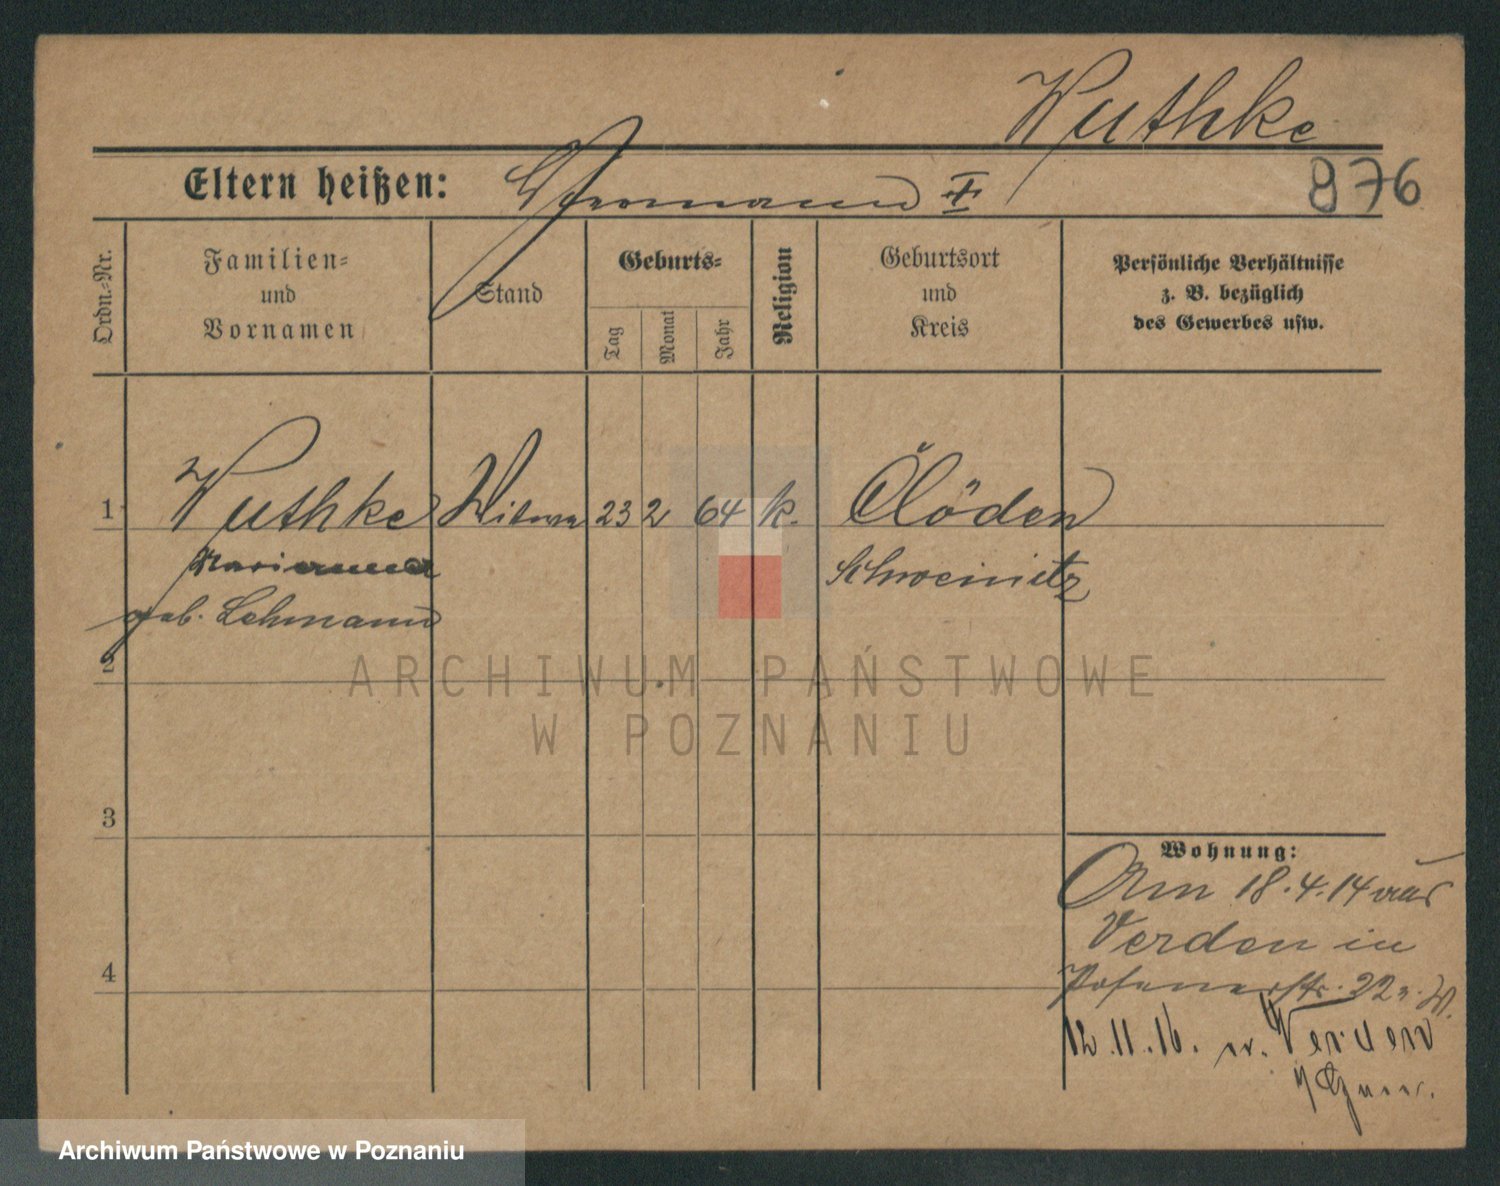 Wuthke
Eltern heißen: Hermann I
876
Ordn.-Nr.
Familien-
und
Vornamen
Stand
Geburts-
Tag
Monat
Jahr
Religion
Geburtsort
und
Kreis
Persönliche Verhältnisse
z. B. bezüglich
des Gewerbes usw.
1 Wuthke Witwe 23 2 64 k. Clöden
Marianna Schweinitz
geb. Lehmann
2
3
4
Wohnung:
Am 18.4.14 aus
Verden in
Posenerstr. 22
12.11.16. n.
ARCHIWUM PAŃSTWOWE
W POZNANIU
Archiwum Państwowe w Poznaniu